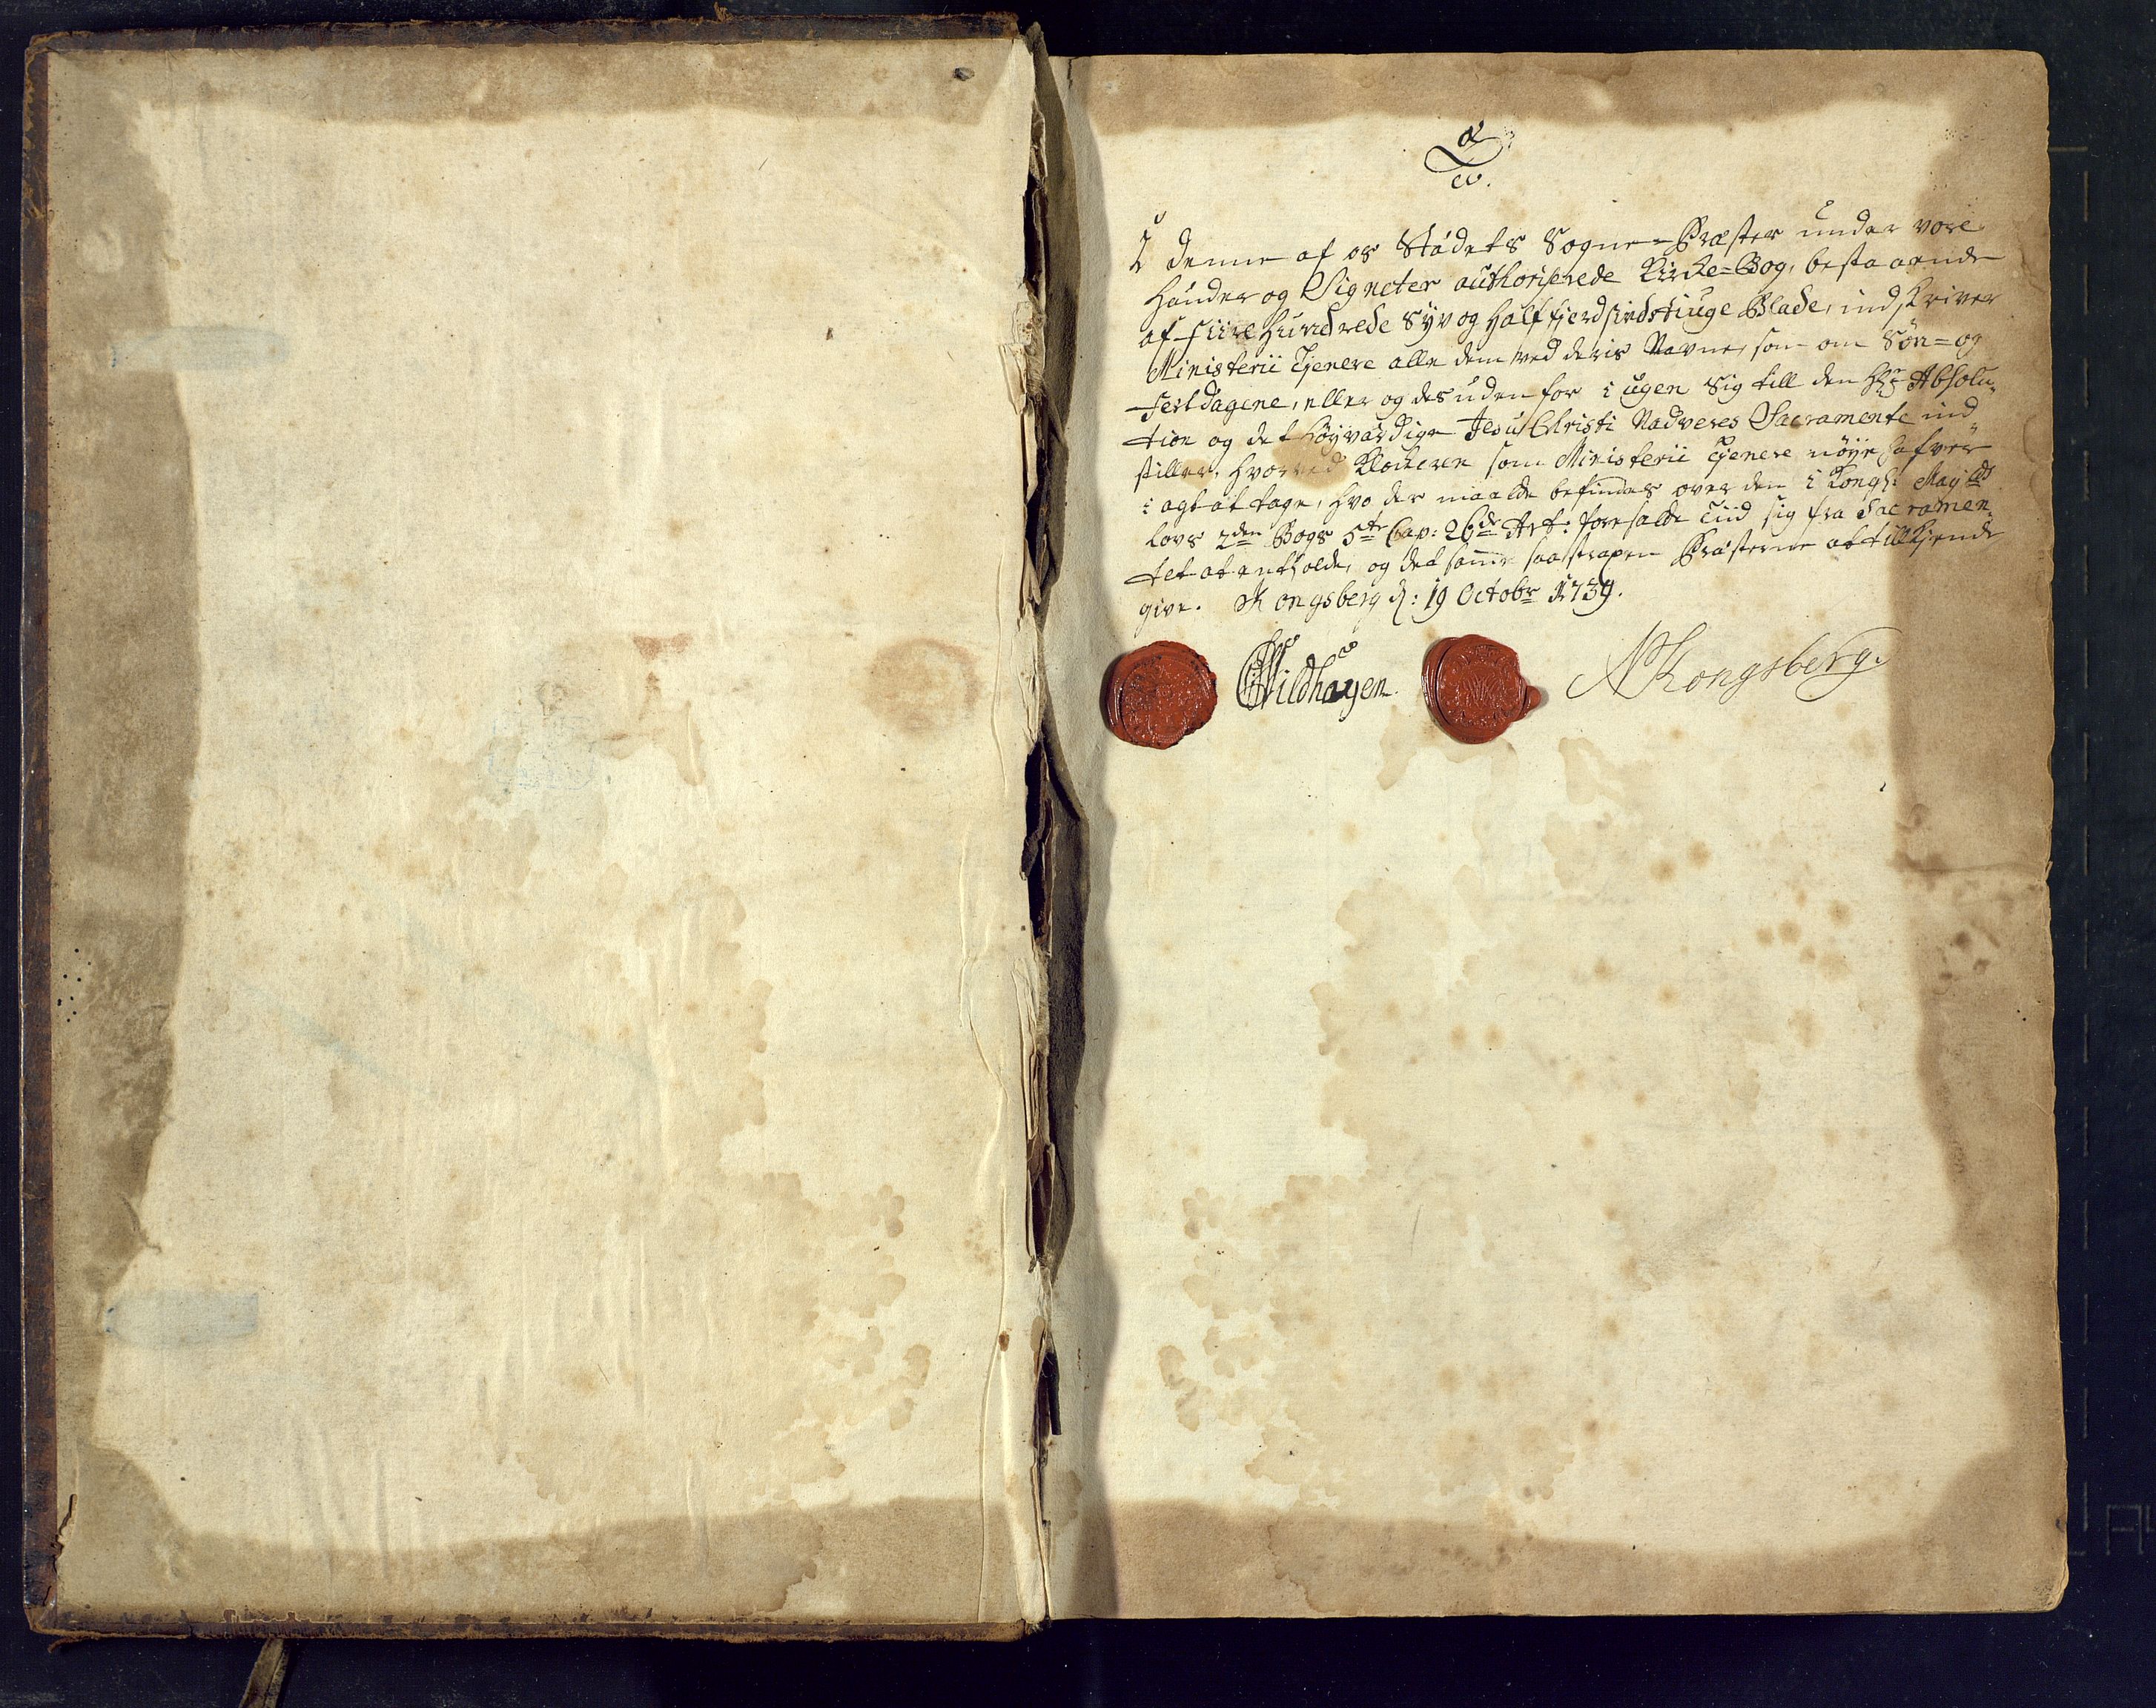 I denne af os Stædets Sogne-Præster under vore
Hænder og Signeter authoriserede Kircke-Bog, bestaaende
af Fiire Hundrede Syv og Halffjerdsindstiuge Blade, indskriver
Ministerii Tjenere alle dem ved deris Navne, som om Søn- og
Festdagene, eller og desuden for i ugen Sig till den Hel: Absolu-
tion og det Høyværdige Jesu Christi Nadveres Sacramente ind
stiller, hvorved Klockeren som Ministerii Tjenere nøye hafver
i agt at tage, hvo der maatte befindes over den i Kongl: Mayts
Lovs 2den Bogs 5te Cap: 26de Art: foresatte Tiid sig fra Sacramen-
tet at entholde, og det samme saa Præsterne at tilkjende
give. Kongsberg d: 19 Octobr 1739.
Wildhagen. N Kongsberg.